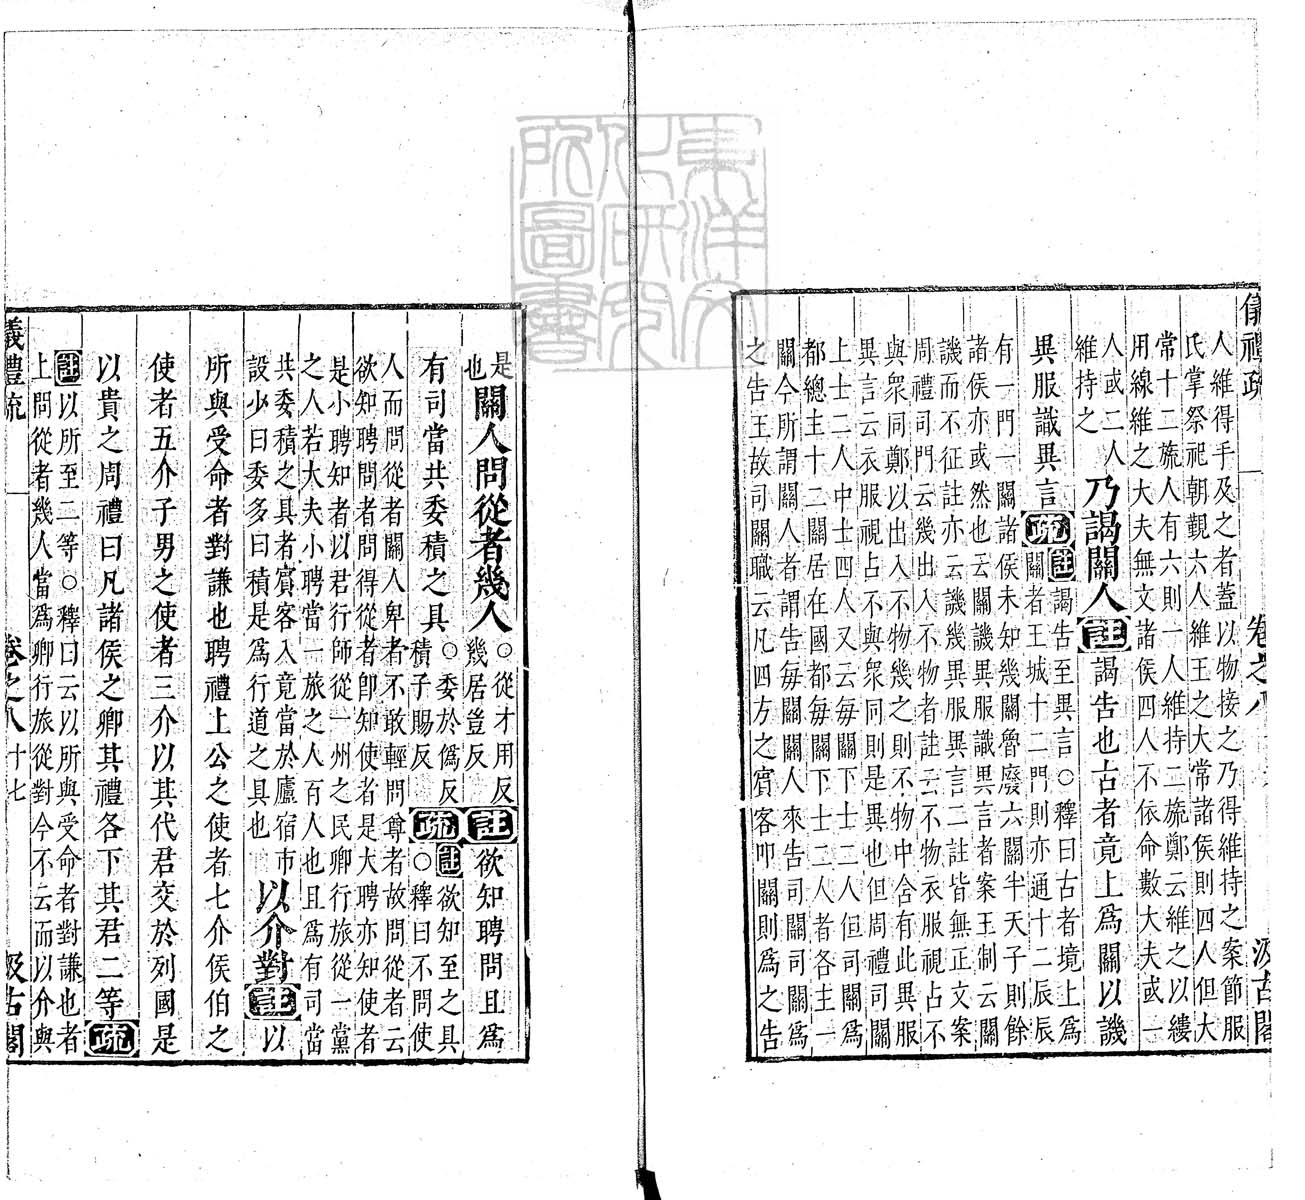 儀禮疏 卷之八 汲古閣
人維得手及之者蓋以物接之乃得維持之案節服
氏掌祭祀朝覲六人維王之大常諸侯則四人但大
常十二旒人有六則一人維持二旒鄭云維之以縷
用線維之大夫無文諸侯四人不依命數大夫或一
人或二人
維持之
乃謁關人註謁告也古者竟上爲關以譏
異服識異言疏註謁告至異言○釋曰古者境上爲
關者王城十二門則亦通十二辰辰
有一門一關諸侯未知幾關魯廢六關半天子則餘
諸侯亦或然也云關譏異服識異言者案王制云關
譏而不征註亦云譏幾異服異言二註皆無正文案
周禮司門云幾出入不物者註云不物衣服視占不
與衆同鄭以出入不物幾之則不物中含有此異服
異言云衣服視占不與衆同則是異也但周禮司關
上士二人中士四人又云每關下士二人但司關爲
都總主十二關居在國都每關下士二人者各主一
關今所謂關人者謂告每關關人來告司關司關爲
之告王故司關職云凡四方之賓客叩關則爲之告
是
也
關人問從者幾人
○從才用反
幾居豈反
註欲知聘問且爲
有司當共委積之具
○委於僞反
積子賜反
疏註欲知至之具
○釋曰不問使
人而問從者關人卑者不敢輕問尊者故問從者云
欲知聘問者問得從者卽知使者是大聘亦知使者
是小聘知者以君行師從一州之民卿行旅從一黨
之人若大夫小聘當一旅之人百人也且爲有司當
共委積之具者賓客入竟當於廬宿市
設少曰委多曰積是爲行道之具也
以介對註以
所與受命者對謙也聘禮上公之使者七介侯伯之
使者五介子男之使者三介以其代君交於列國是
以貴之周禮曰凡諸侯之卿其禮各下其君二等疏
註以所至二等○釋曰云以所與受命者對謙也者
上問從者幾人當爲卿行旅從對今不云而以介與
儀禮疏 卷之八 十七 汲古閣
東洋文化研究所圖書